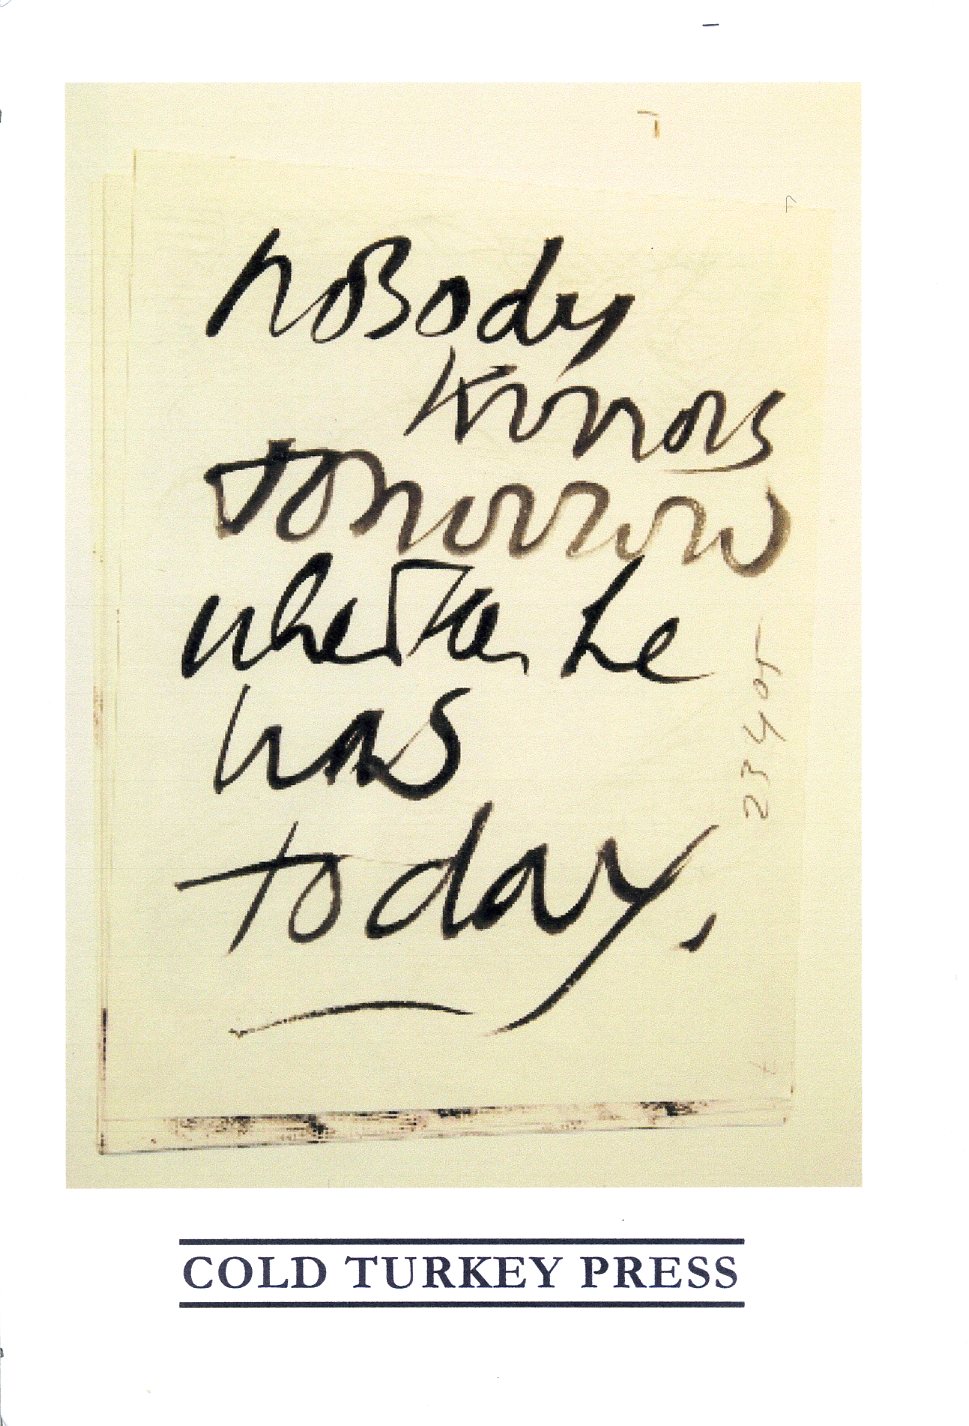 noBody
knows
tomorrow
whether he
was
today,
23 4 05
COLD TURKEY PRESS